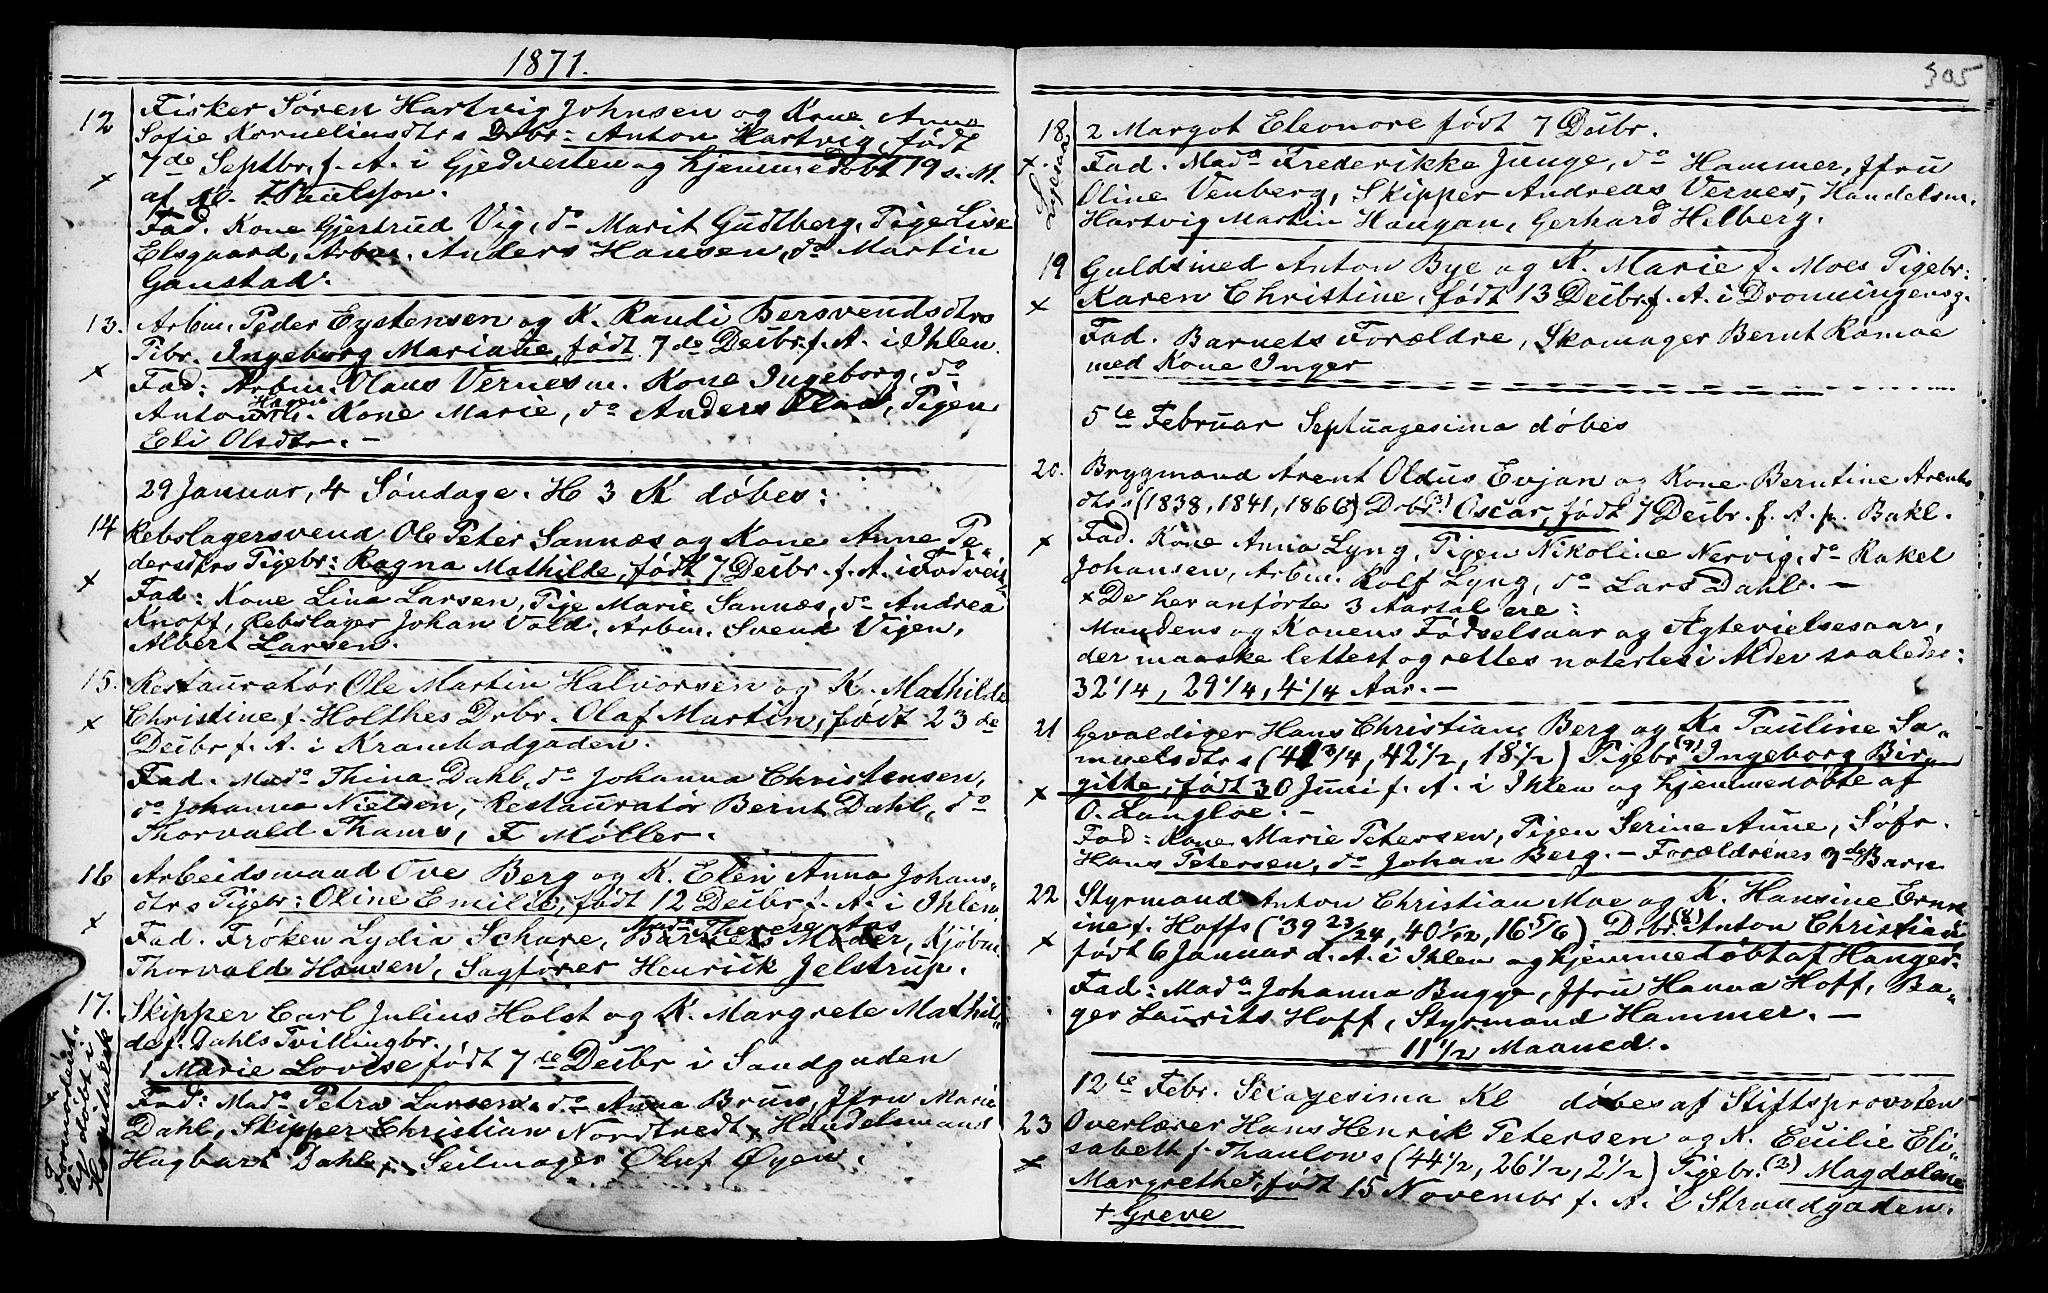 1871.
12 Fisker Sören Hartvig Johnsen og Kone Anna
Sofie Kornelinsdtrs Drbr: Anton Hartvig, født
7de Septbr. f. A. i Gjedvesten og hjemmedøbt 19 s. M.
x af Kl. F. Paulsson.
Fad. Kone Gjertrud Vig, do Marit Gudtberg, Pige Lise
Elsgaard, Arbm. Anders Hansen, do Martin
Ganstad.
13. Arbm. Peder Eystensen og K. Randi Bersvendsdtrs
Pibr. Ingeborg Mariane, født 7de Decbr. f. A. i Ihlen.
x Fad: Arbm. Olaus Vernes m. Kone Ingeborg, do
Anton Hagen m. Kone Marie, do Anders Flaa, Pigen
Eli Olsdtr. –
29 Januar, 4 Søndag e. H 3 K døbes:
14 Rebslagersvend Ole Peter Sannæs og Kone Anne Pe-
dersdtrs Pigebr: Ragna Mathilde, født 7 Decbr. f. A. i Fodveit.
x Fad: Kone Lina Larsen, Pige Marie Sannæs, do Andrea
Knoff, Rebslager Johan Vold, Arbm. Svend Vigen,
Albert Larsen.
15. Restauratør Ole Martin Halvorsen og K. Mathilde
x Christine f. Holthes Drbr. Olaf Martin, født 23de
Decbr f. A. i Krambodgaden.
Fad. Mada Thina Dahl, do Johanna Christensen,
do Johanna Nielsen, Restauratør Bernt Dahl, do
Thorvald Thams, F Møller.
16 Arbeidsmand Ove Berg og K. Elen Anna Johans-
dtrs Pigebr: Oline Emilie, født 12 Decbr f. A. i Ihlen
x Mada Therese
Fad. Frøken Lydia Schare, Barnets Moder, Kjøbm.
Thorvald Hansen, Sagfører Henrik Jelstrup.
17. Skipper Carl Julius Holst og K. Margrete Mathil-
de f. Dahls Tvillingbr.
1 Marie Lovise født 7de Decbr i Sandgaden
Fad: Mada Petra Larsen, do Anna Bruus, Jfru Marie
Dahl, Skipper Christian Nordtvedt, Handelsmand
Hagbart Dahl, Seilmager Oluf Øyen.
x
døbt i
Hospitalsk
305
18, 2 Margot Eleonore født 7 Decbr.
x. Fad. Mada Frederikke Junge, do Hammer, Jfru
Oline Venberg, Skipper Andreas Vernes, Handelsm.
Hartvig Martin Haugan, Gerhard Helberg.
19 Guldsmed Anton Bye og K. Marie f. Moes Pigebr:
x Karen Christine, født 13 Decbr. f. A. i Dronningensg.
Fad. Barnets Forældre, Skomager Bernt Ramoe
med Kone Inger
5te Februar Septuagesima døbes
20. Brygmand Arent Oldus Evjan og Kone Berntine Arents
dtrs (1838, 1841, 1866) Drbr (3) Oscar, født 7 Decbr. f. A. p. Bakl.
x Fad. Kone Anna Lyng, Pigen Nikoline Nervig, do Rakel
Johansen, Arbm. Rolf Lyng, do Lars Dahl. –
x De her anførte 3 Aartal ere:
Mandens og Konens Fødselsaar og Ægtevielsesaar,
der maaske lettest og rettes noteres i Alder saaledes:
32 1/4, 29 1/4, 4 1/4 Aar. –
21 Gevaldiger Hans Christian Berg og K. Pauline Sa-
muelsdtrs (41 3/4, 42 1/2, 18 1/2) Pigebr (9) Ingeborg Bir-
x gitte, født 30 Juni f. A. i Ihlen og hjemmedøbte af
O. Langloe. –
Fad: Kone Marie Petersen, Pigen Serine Anne, Søfr.
Hans Petersen, do Johan Berg. – Forældrenes 9de Barn
22 Styrmand Anton Christian Moe og K. Hansine Ernst
ine f. Hoffs (39 23/24, 40 1/12, 16 5/6) Drbr. (8) Anton Christian
x født 6 Januar d. A. i Ihlen og hjemmedøbt af
Fad: Mada Johanna Bugge, Jfru Hanna Hoff, Ba-
ger Laurits Hoff, Styrmand Hammer. –
11 1/2 Maaned.
12te Febr. Sexagesima Kl døbes af Stiftsprovsten
23 Overlærer Hans Henrik Petersen og K. Cecilie Eli-
x sabeth f. Thaulows (44 1/2, 26 1/2, 2 1/2) Pigebr. (2) Magdalene
Margrethe +, født 15 Novembr f. A. i Strandgaden.
+ Greve